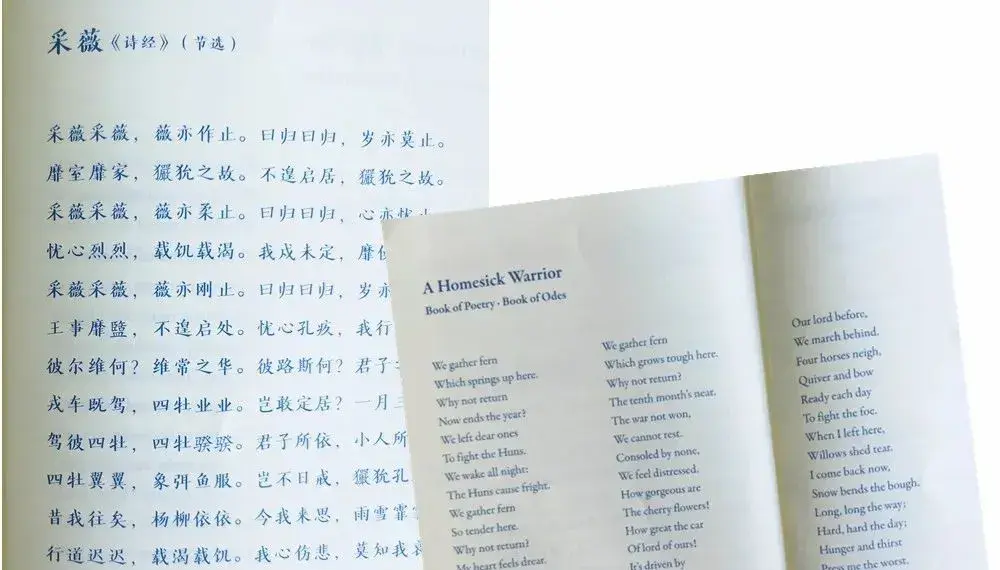 采薇《诗经》(节选)
采薇采薇，薇亦作止。曰归曰归，岁亦莫止。
靡室靡家，玁狁之故。不遑启居，玁狁之故。
采薇采薇，薇亦柔止。曰归曰归，心亦忧止
忧心烈烈，载饥载渴。我戍未定，靡使
采薇采薇，薇亦刚止。曰归曰归，岁亦
王事靡盬，不遑启处。忧心孔疚，我行
彼尔维何？维常之华。彼路斯何？君子
戎车既驾，四牡业业。岂敢定居？一月三
驾彼四牡，四牡骙骙。君子所依，小人所
四牡翼翼，象弭鱼服。岂不日戒，玁狁孔
昔我往矣，杨柳依依。今我来思，雨雪霏
行道迟迟，载渴载饥。我心伤悲，莫知我哀
A Homesick Warrior
Book of Poetry · Book of Odes
We gather fern
Which springs up here.
Why not return
Now ends the year?
We left dear ones
To fight the Huns.
We wake all night:
The Huns cause fright.
We gather fern
So tender here.
Why not return?
My heart feels drear.
We gather fern
Which grows tough here.
Why not return?
The tenth month's near.
The war not won,
We cannot rest.
Consoled by none,
We feel distressed.
How gorgeous are
The cherry flowers!
How great the car
Of lord of ours!
It's driven by
Our lord before,
We march behind.
Four horses neigh,
Quiver and bow
Ready each day
To fight the foe.
When I left here,
Willows shed tear.
I come back now,
Snow bends the bough.
Long, long the way;
Hard, hard the day;
Hunger and thirst
Press me the worst.